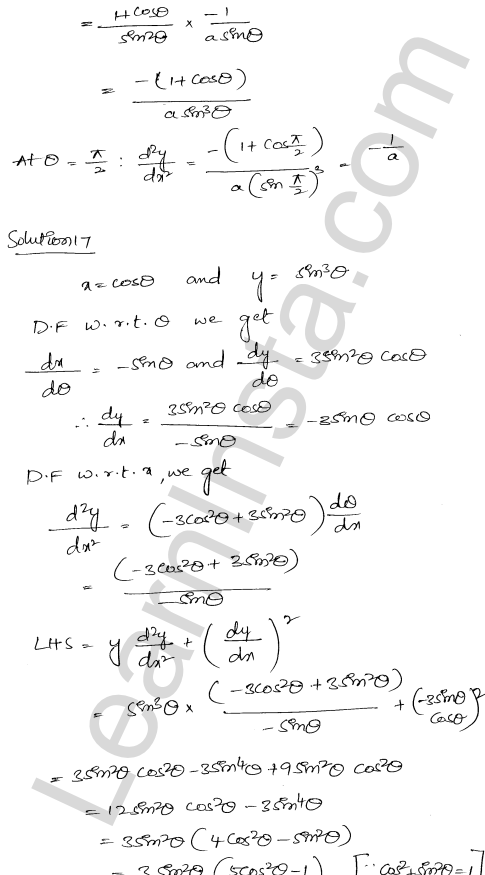 = (1+cosθ)/(sin²θ) × (-1)/(a sinθ)
= -(1+cosθ)/(a sin³θ)
At θ = π/2 : d²y/dx² = -(1+cos π/2)/(a(sin π/2)³) = -1/a
Solution17
x = cosθ and y = sin³θ
D.F w.r.t. θ we get
dx/dθ = -sinθ and dy/dθ = 3sin²θ cosθ
∴ dy/dx = (3sin²θ cosθ)/(-sinθ) = -3sinθ cosθ
D.F w.r.t. x, we get
d²y/dx² = (-3cos²θ + 3sin²θ) dθ/dx
= (-3cos²θ + 3sin²θ)/(-sinθ)
LHS = y d²y/dx² + (dy/dx)²
= sin³θ × (-3cos²θ + 3sin²θ)/(-sinθ) + (-3sinθ cosθ)²
= 3sin²θ cos²θ - 3sin⁴θ + 9sin²θ cos²θ
= 12sin²θ cos²θ - 3sin⁴θ
= 3sin²θ (4cos²θ - sin²θ)
= 3sin²θ (5cos²θ - 1) [∵ cos² + sin²θ = 1]
LearnInsta.com